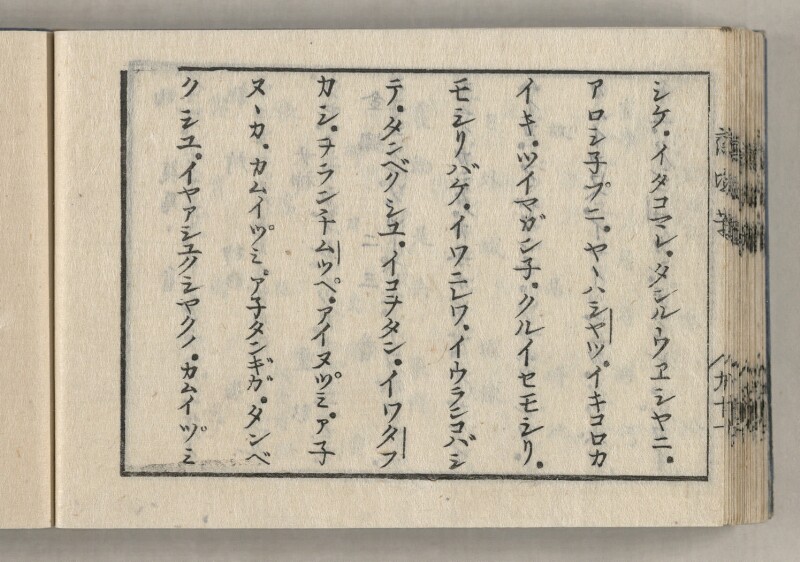 シケ。イタコマレ。タシルーウエシヤニ。
アロシ子プニ。ヤヽハシヤツ。イキコロカ
イキ。ツイマガン子。クルイセモシリ。
モシリバケ。イワニレワ。イウラシコバシ
テ。タンベクシユ。イコヲタン。イワタフ
カシ。ヲランチムツペ。アイヌツ゚ミ。ア子
ヌヽカ。カムイツ゚ミ。ア子タンギガ。タンベ
クシユ。イヤアシユクシヤクノ。カムイツ゚ミ